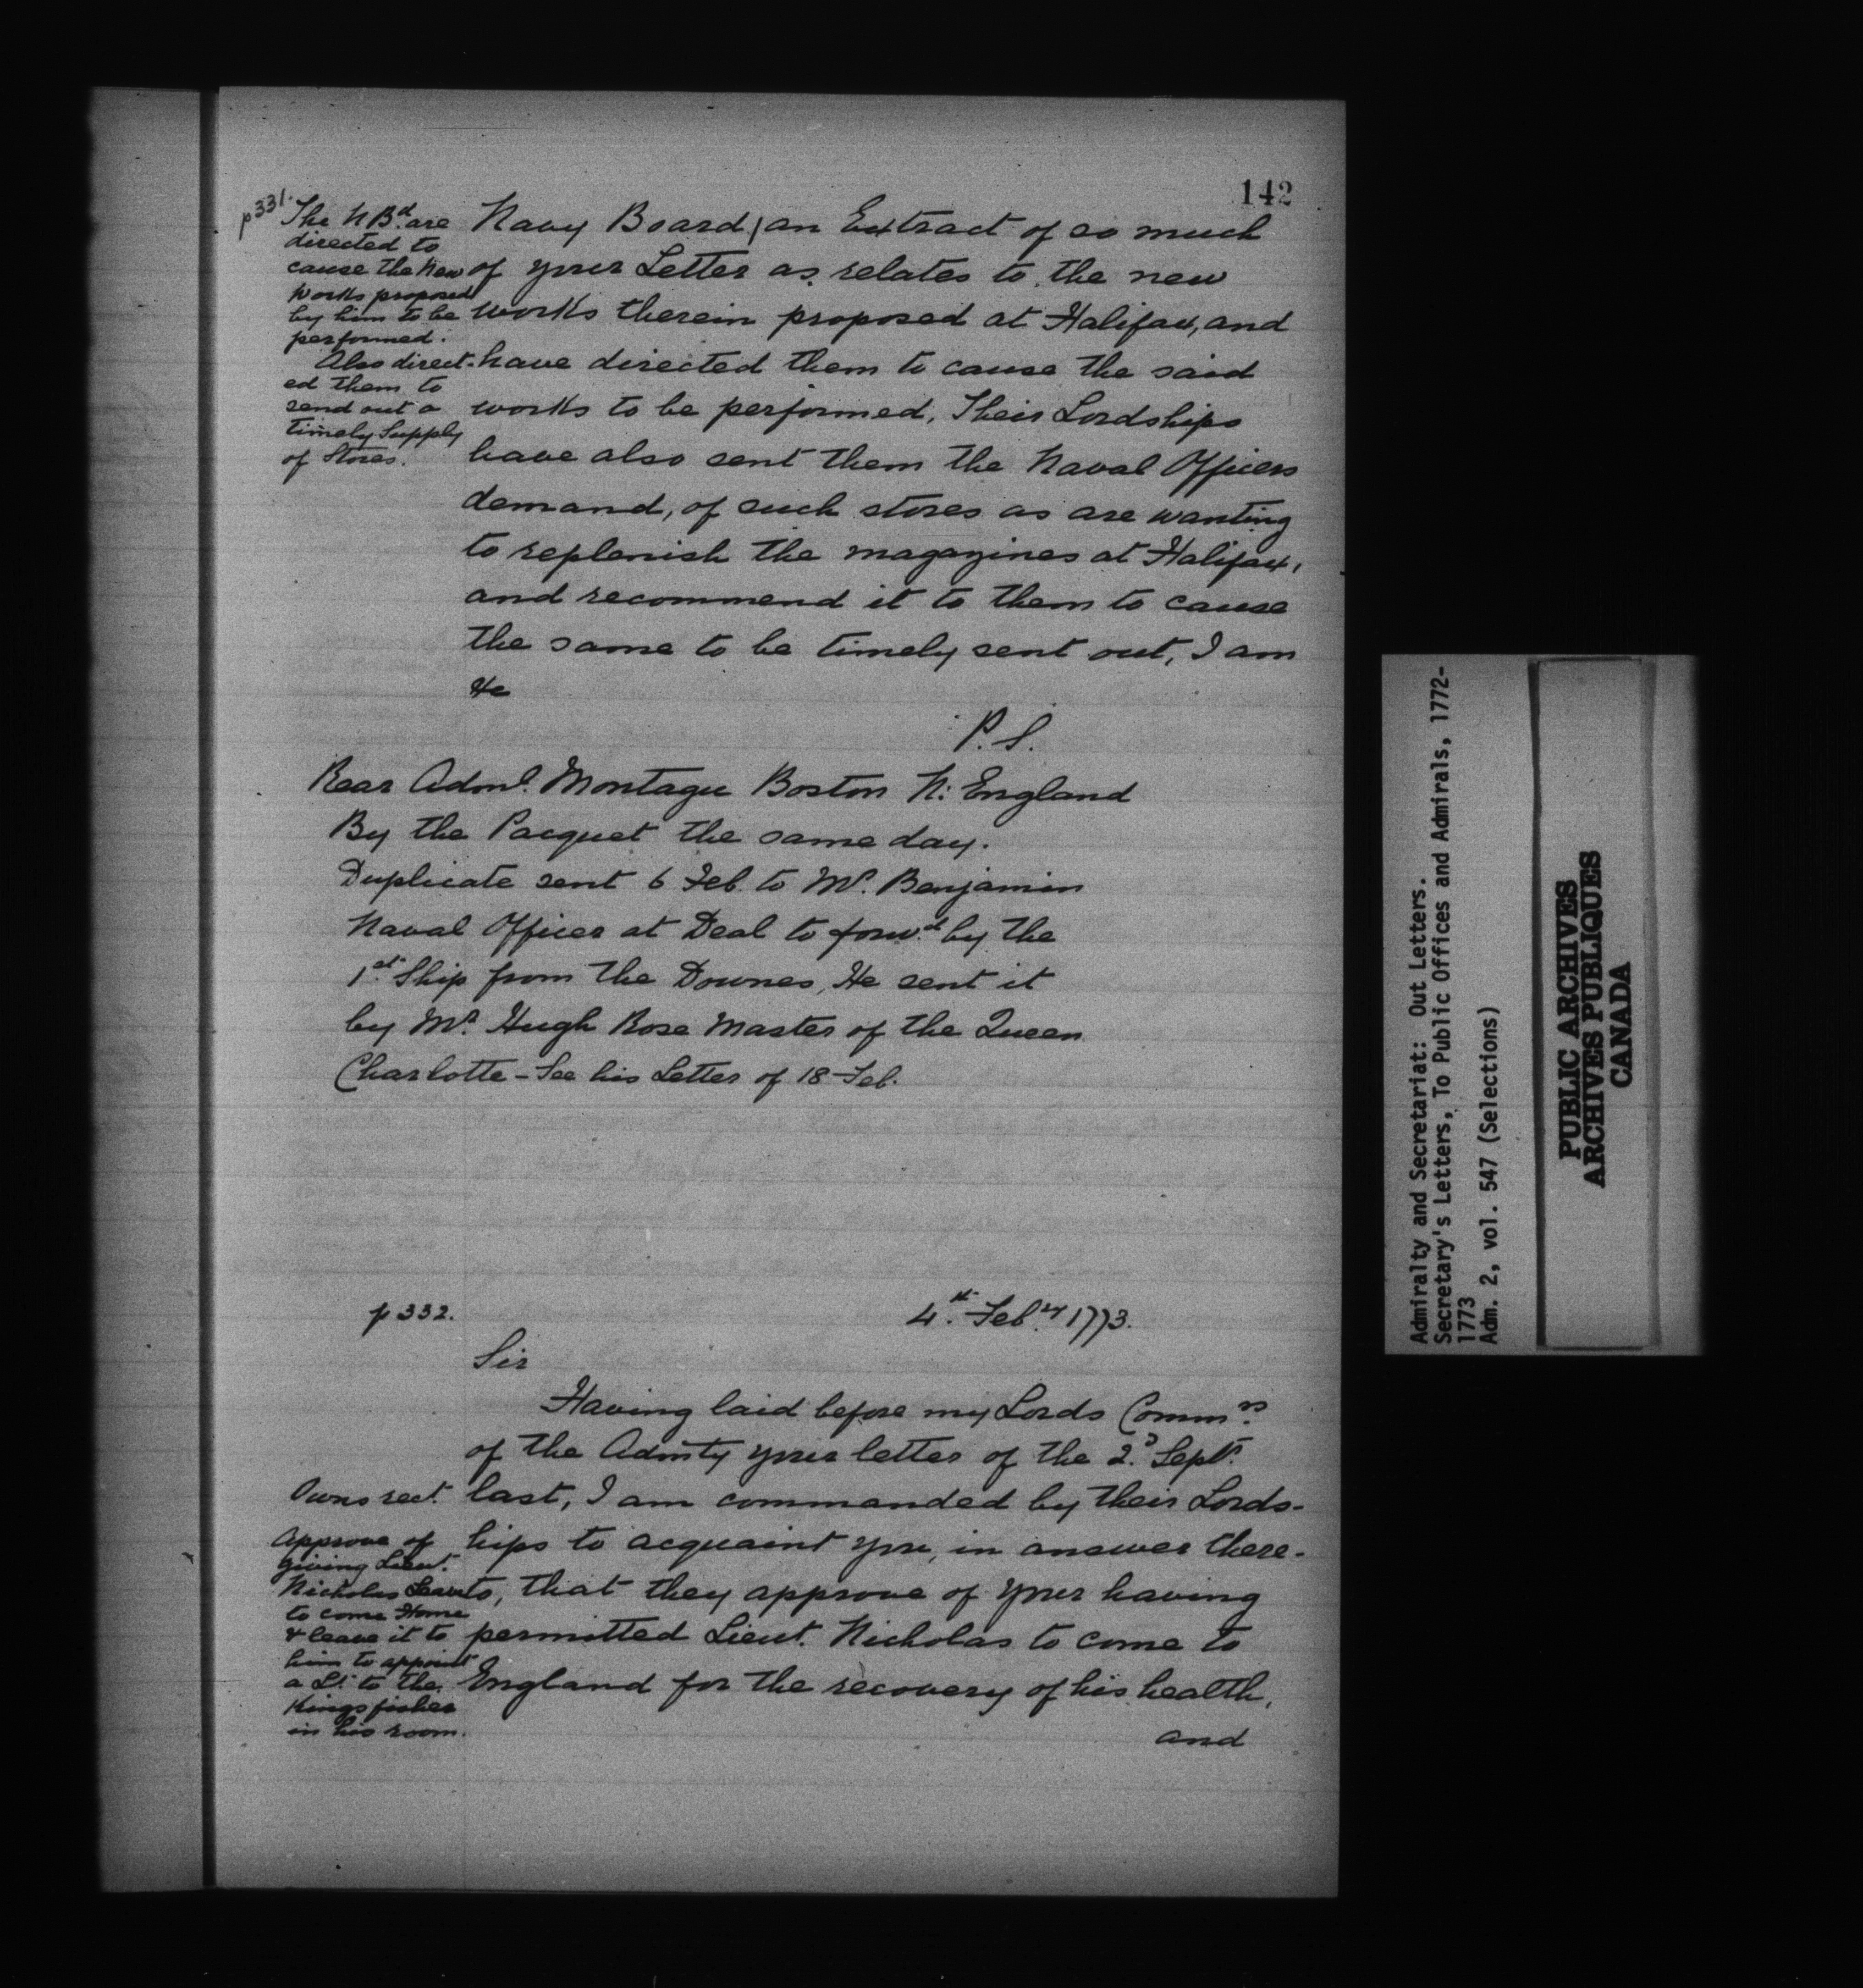 142
p331.
The N Bd. are
directed to
cause the New
Works proposed
by him to be
performed.
Also direct-
ed them to
send out a
timely Supply
of Stores.
Navy Board) an Extract of so much
of your Letter as relates to the new
works therein proposed at Halifax, and
have directed them to cause the said
works to be performed, Their Lordships
have also sent them the Naval Officers
demand, of such stores as are wanting
to replenish the magazines at Halifax,
and recommend it to them to cause
the same to be timely sent out, I am
&c
P.S.
Rear Adml. Montagu Boston N: England
By the Pacquet the same day.
Duplicate sent 6 Feb. to Mr. Benjamin
Naval Officer at Deal to forwd. by the
1st. Ship from the Downes, He sent it
by Mr. Hugh Rose Master of the Queen
Charlotte - See his Letter of 18 Feb.
p 332.
4th. Feby. 1773.
Sir
Having laid before my Lords Commrs.
of the Admty your letter of the 2d. Septr.
last, I am commanded by their Lords-
hips to acquaint you, in answer there-
to, that they approve of your having
permitted Lieut. Nicholas to come to
England for the recovery of his health,
and
Owns rect.
Approve of
giving Lieut.
Nicholas Leave
to come Home
& leave it to
him to appoint
a Lt. to the
Kingsfisher
in his room.
Admiralty and Secretariat: Out Letters.
Secretary's Letters, To Public Offices and Admirals, 1772-
1773
Adm. 2, vol. 547 (Selections)
PUBLIC ARCHIVES
ARCHIVES PUBLIQUES
CANADA